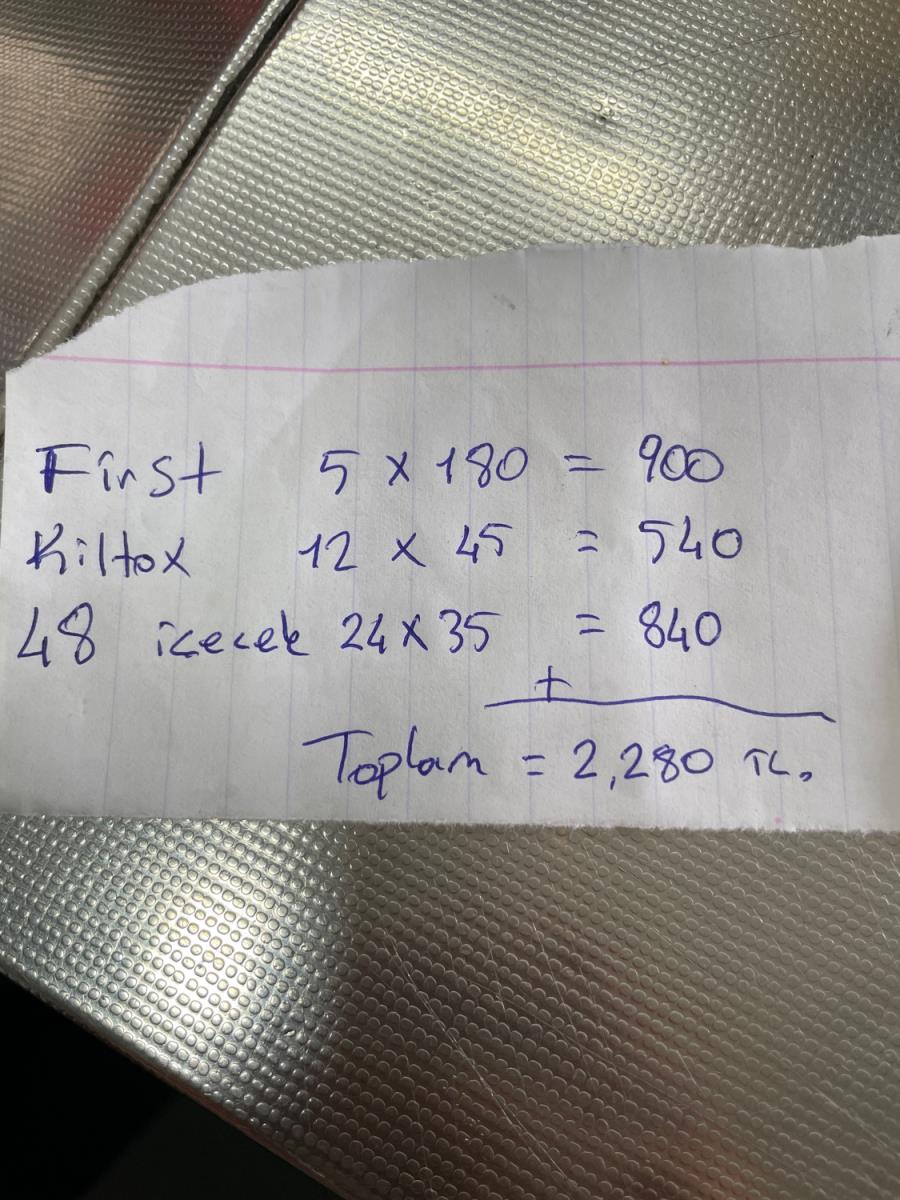 First 5 x 180 = 900
Kiltox 12 x 45 = 540
48 icecek 24 x 35 = 840
+
Toplam = 2,280 TL.